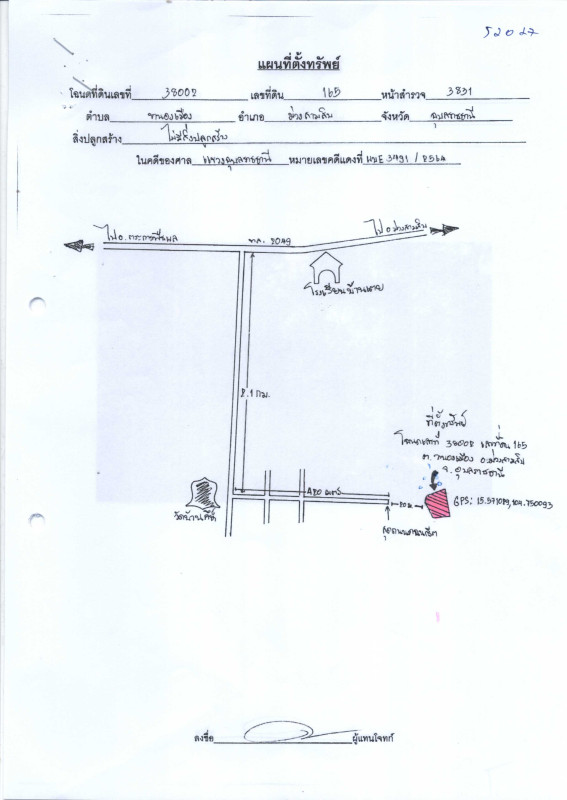 52027
แผนที่ตั้งทรัพย์
โฉนดที่ดินเลขที่ 38002 เลขที่ดิน 165 หน้าสำรวจ 3831
ตำบล หนองเมือง อำเภอ ม่วงสามสิบ จังหวัด อุบลราชธานี
สิ่งปลูกสร้าง ไม่มีสิ่งปลูกสร้าง
ในคดีของศาล แขวงอุบลราชธานี หมายเลขคดีแดงที่ ผบE 3491 / 2564
ไป อ.ตระการพืชผล
ทล. 2049
ไป อ.ม่วงสามสิบ
โรงเรียนบ้านเตย
2.1 กม.
ที่ตั้งทรัพย์
โฉนดเลขที่ 38002 เลขที่ดิน 165
ต.หนองเมือง อ.ม่วงสามสิบ
จ.อุบลราชธานี
420 เมตร
GPS: 15.571019,104.750093
สุดถนนคอนกรีต
ลงชื่อ ผู้แทนโจทก์